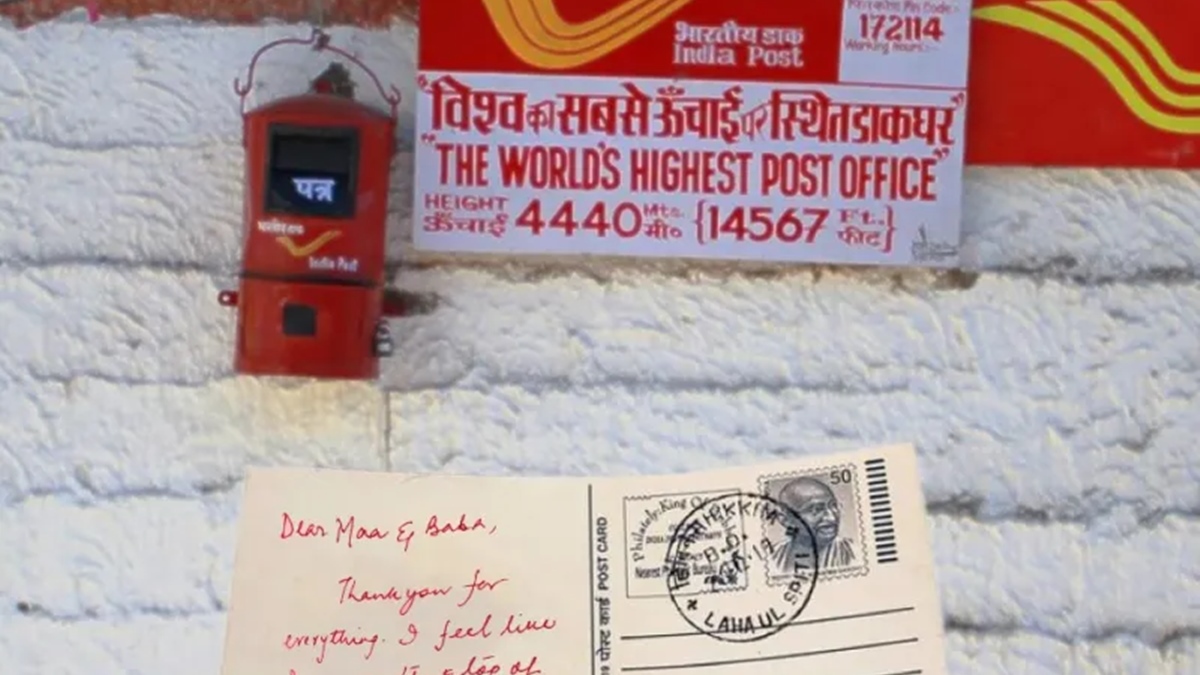 भारतीय डाक
India Post
172114
Working Hours:-
"विश्व का सबसे ऊँचाई पर स्थित डाकघर"
"THE WORLD'S HIGHEST POST OFFICE"
HEIGHT
ऊँचाई
4440 Mts. मी० {14567 Ft., फीट}
पत्र
India Post
Dear Maa & Baba,
Thank you for
everything. I feel like
top of
पोस्ट कार्ड POST CARD
Philately: King Of
Nearest
HIKKIM
LAHAUL SPITI
50